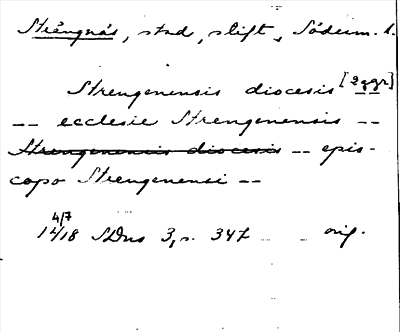 Strängnäs, stad, stift, Söderm. l.
Strengenensis diocesis [2 ggr]
-- ecclesie Strengenensis --
Strengenensis diocesis -- epis-
copo Strengenensi --
4/7
1418 SDns 3, s. 347 orig.